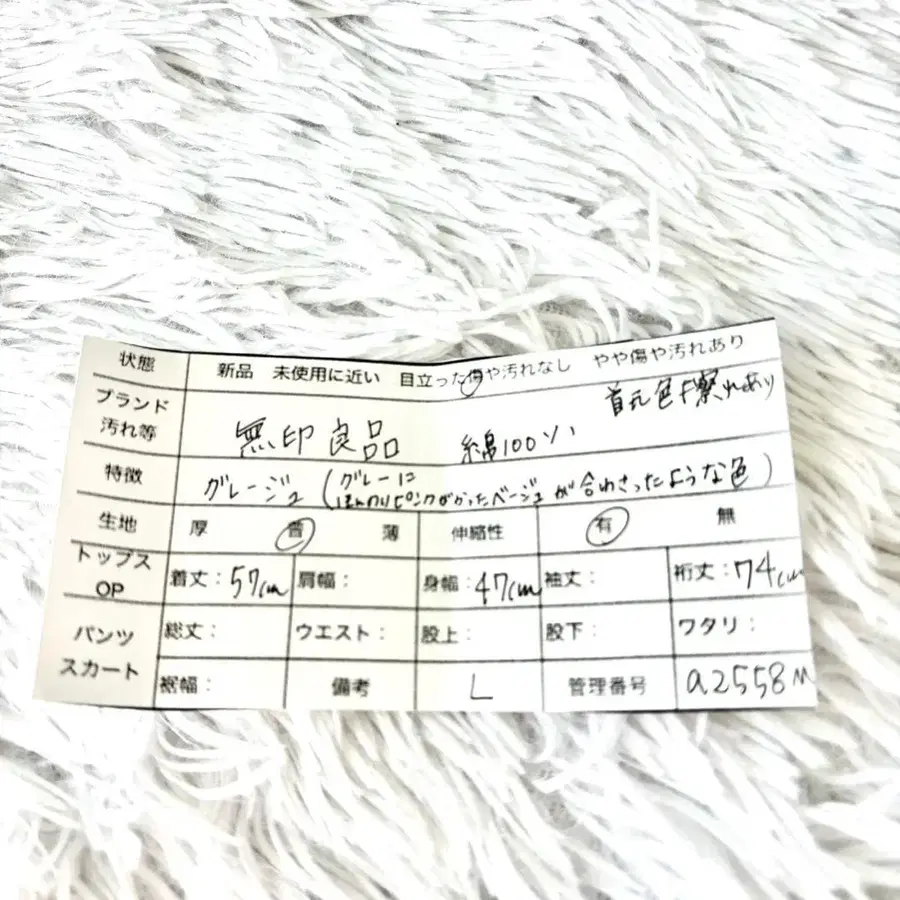 状態 新品 未使用に近い 目立った傷や汚れなし やや傷や汚れあり
ブランド 汚れ等 無印良品 綿100% 首元色擦れあり
特徴 グレージュ (グレーに
ほんのりピンクがかったベージュが合わさったような色)
生地 厚 普 薄 伸縮性 有 無
トップス OP 着丈:57cm 肩幅: 身幅:47cm 袖丈: 裄丈:74cm
パンツ スカート 総丈: ウエスト: 股上: 股下: ワタリ:
裾幅: 備考 L 管理番号 a2558M